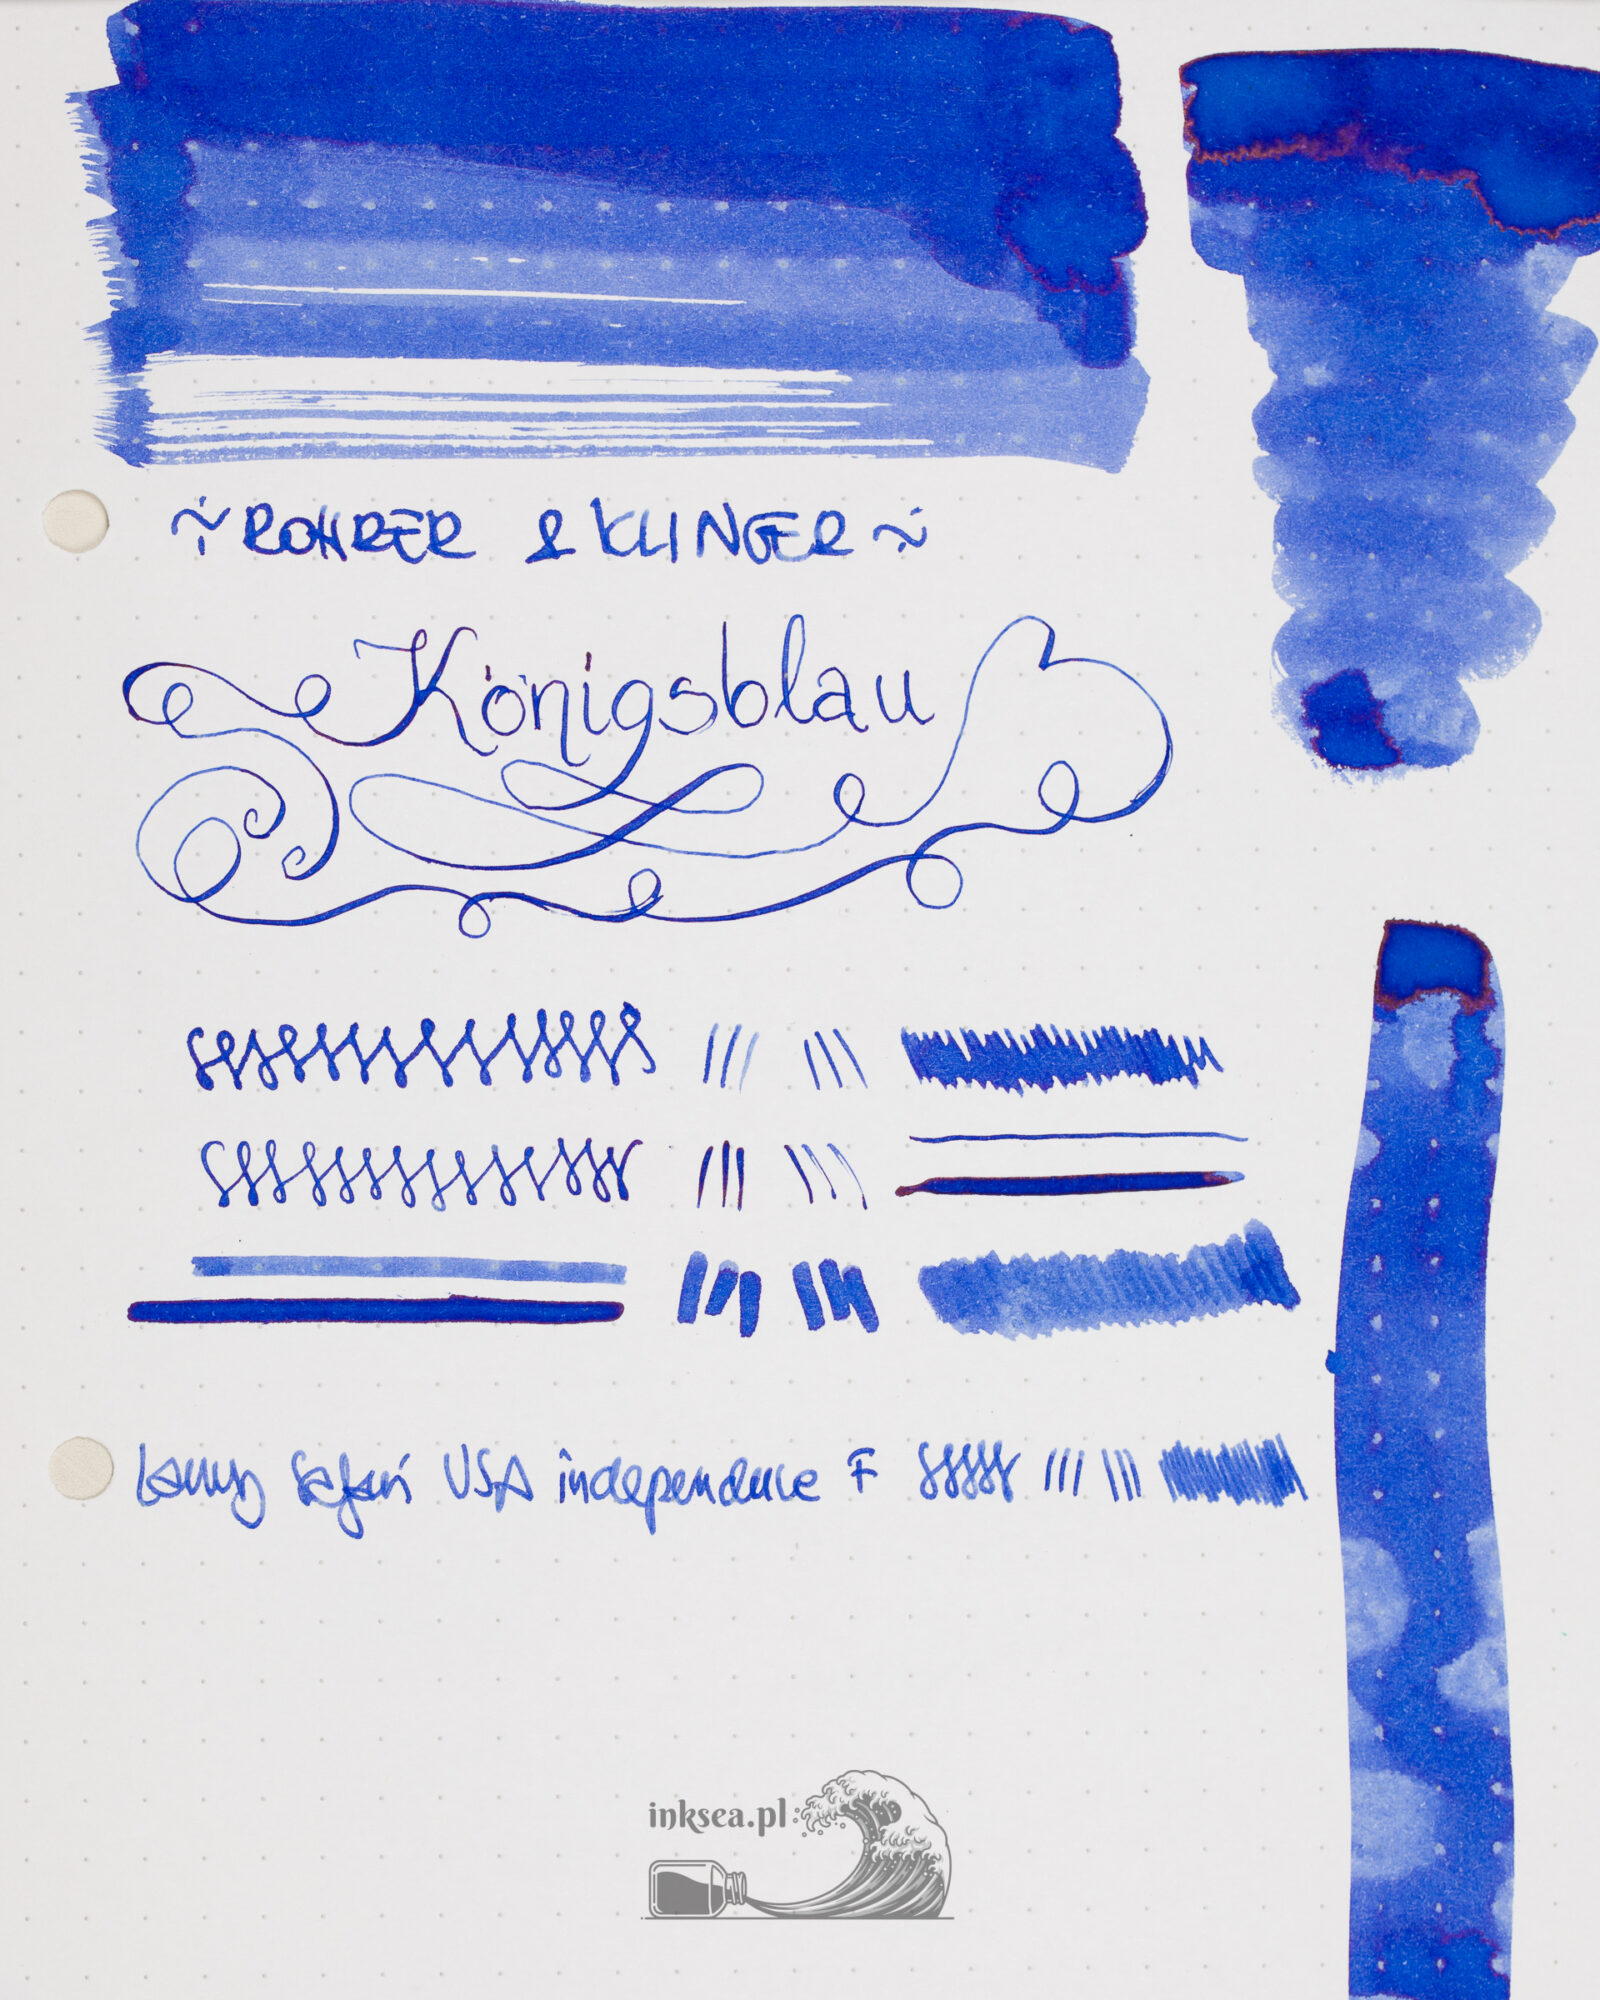 ~ ROHRER & KLINGER ~
Königsblau
Lamy Safari USA independence F
inksea.pl